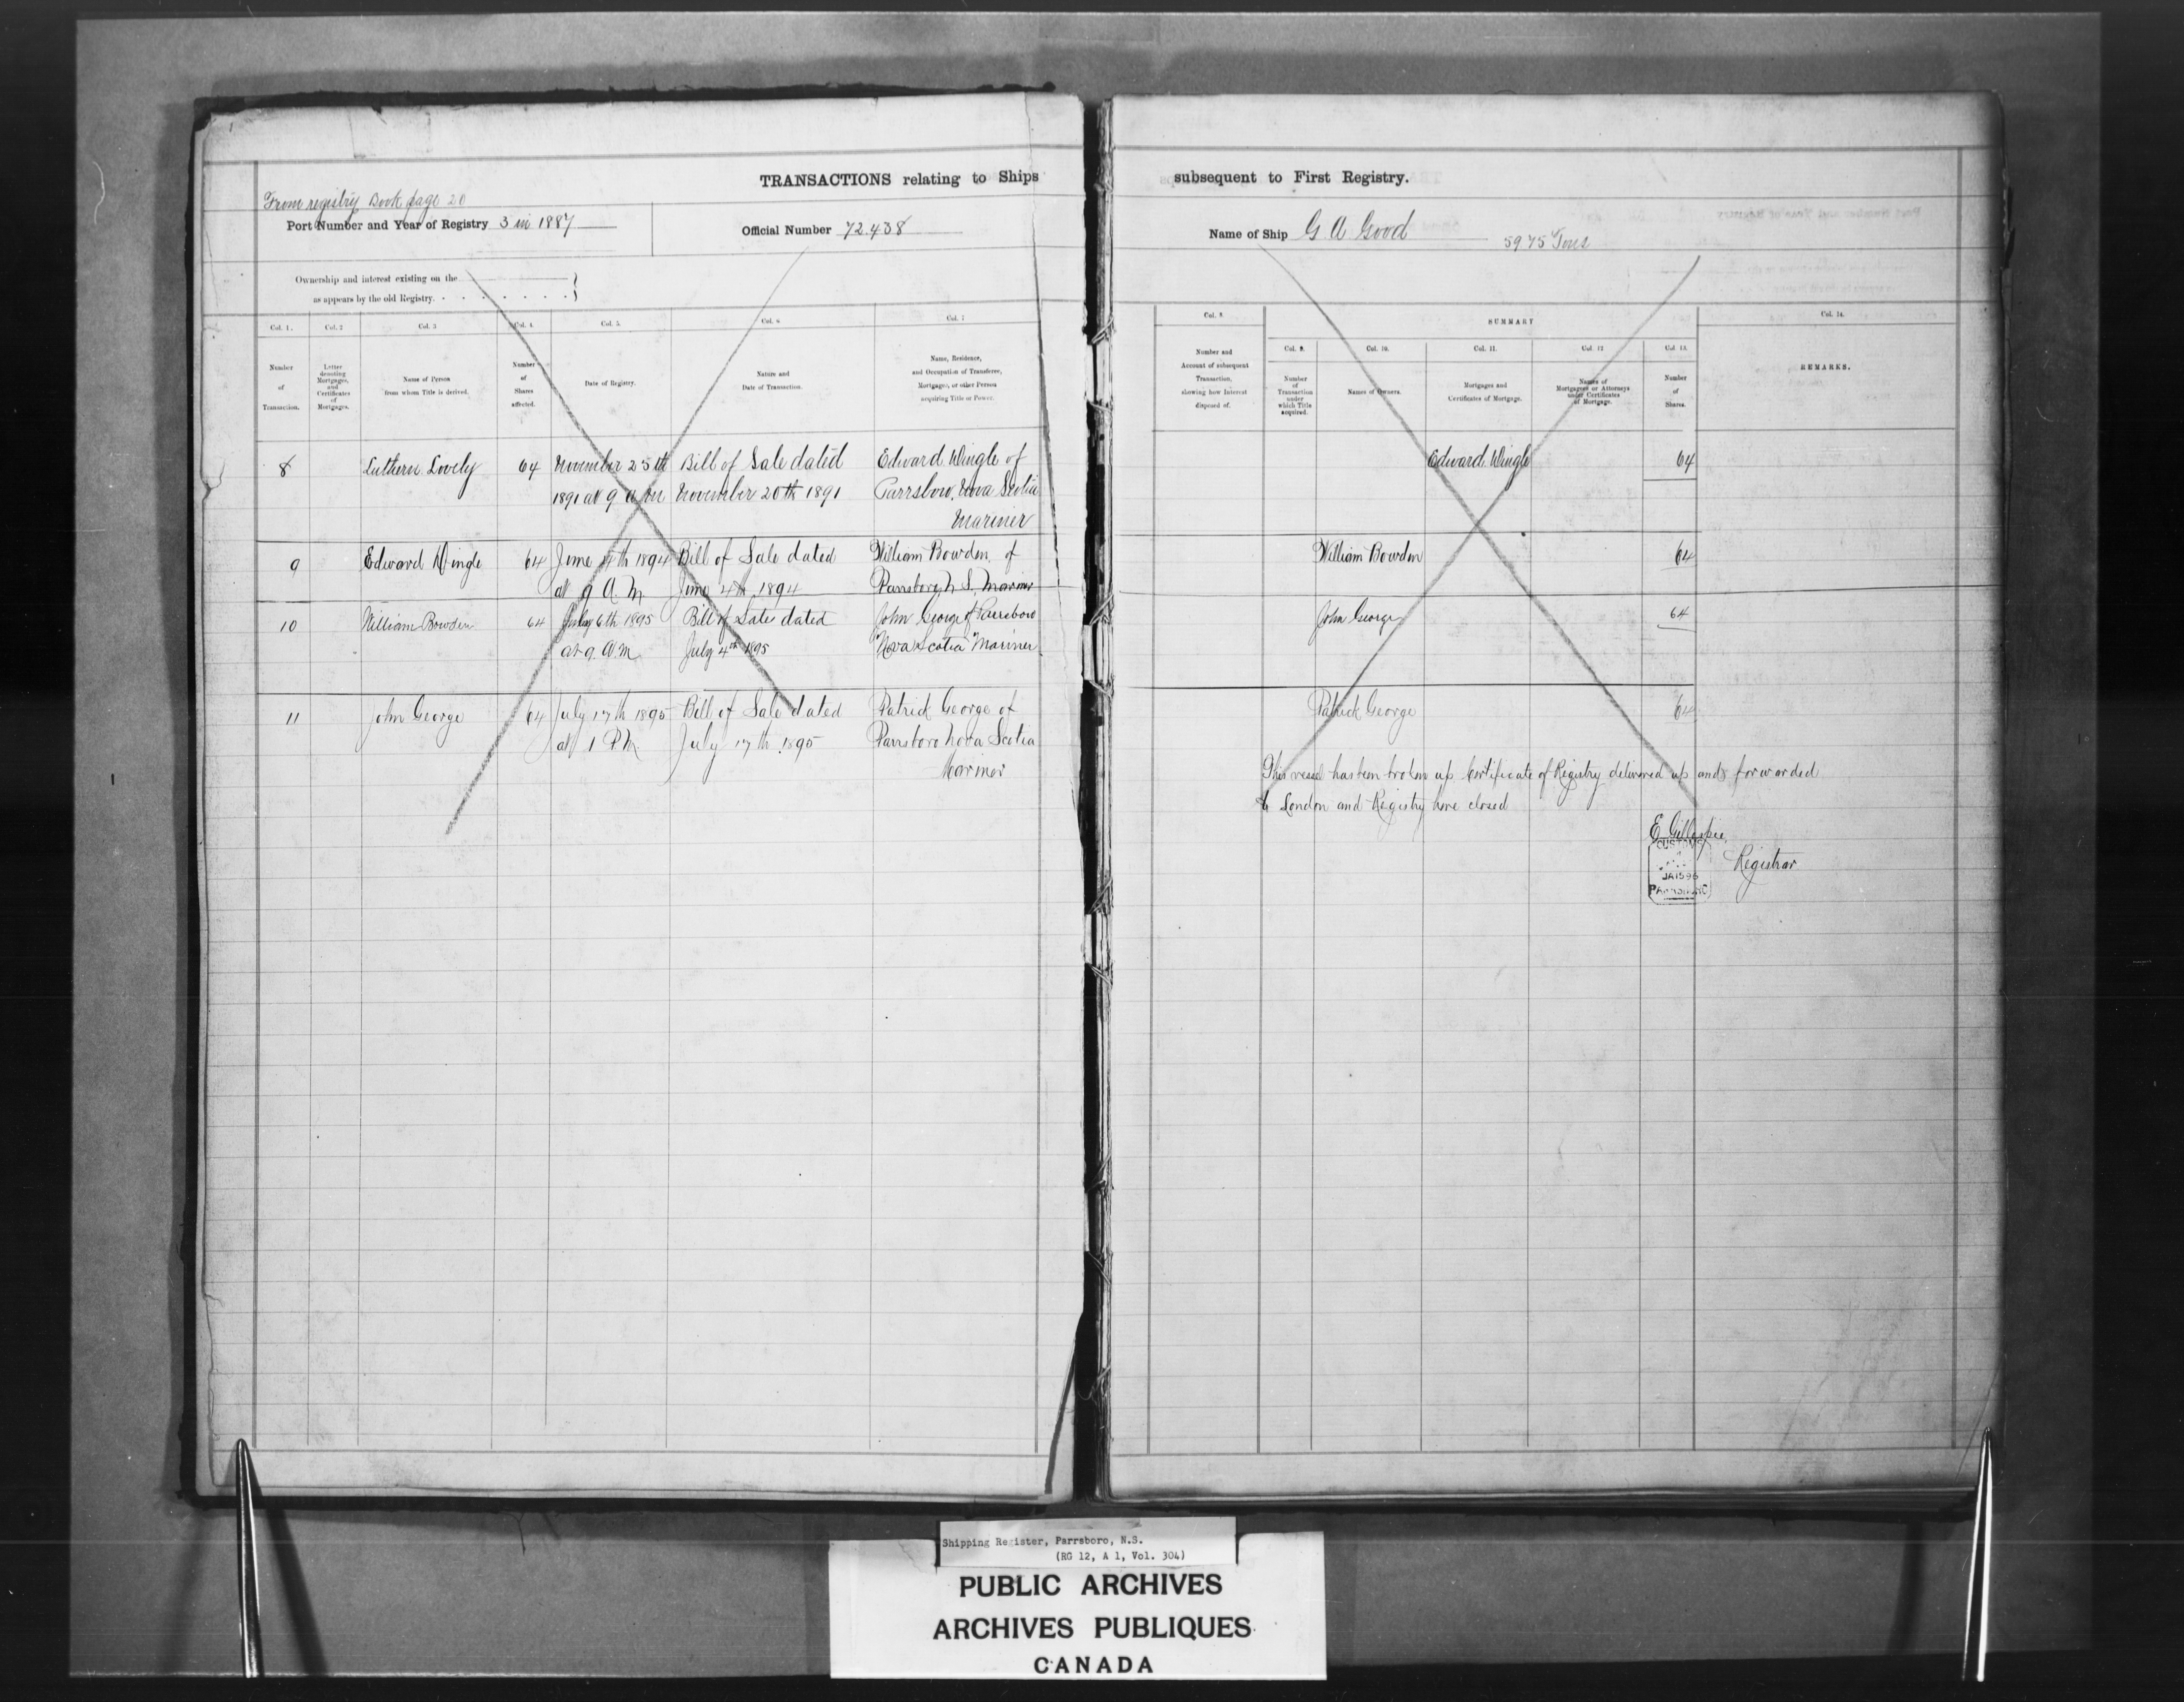 TRANSACTIONS relating to Ships
From registry Book page 20
Port Number and Year of Registry 3 in 1887
Official Number 72.438
Ownership and interest existing on the
as appears by the old Registry.
Col. 1. Col. 2 Col. 3 Col. 4. Col. 5. Col. 6 Col. 7
Number of Transaction.
Letter denoting Mortgages, and Certificates of Mortgages.
Name of Person from whom Title is derived.
Number of Shares affected.
Date of Registry.
Nature and Date of Transaction.
Name, Residence, and Occupation of Transferee, Mortgagee, or other Person acquiring Title or Power.
8 Luthern Lovely 64 November 25th Bill of Sale dated Edward Wingle of
1891 at 9 a m November 20th 1891 Parrsboro, Nova Scotia
Mariner
9 Edward Wingle 64 June 4th 1894 Bill of Sale dated William Bowden of
at 9 A. M. June 4th 1894 Parrsboro N S. Mariner
10 William Bowden 64 July 6th 1895 Bill of Sale dated John George of Parrsboro
at 9. A. M July 4th 1895 Nova Scotia Mariner
11 John George 64 July 17th 1895 Bill of Sale dated Patrick George of
at 1 P.M. July 17th 1895 Parrsboro Nova Scotia
Mariner
subsequent to First Registry.
Name of Ship G A Good 5975 Tons
Col. 8. SUMMARY Col. 14.
Col. 9. Col. 10. Col. 11. Col. 12 Col. 13.
Number and Account of subsequent Transaction, showing how Interest disposed of.
Number of Transaction under which Title acquired.
Names of Owners.
Mortgages and Certificates of Mortgage.
Names of Mortgagees or Attorneys under Certificates of Mortgage.
Number of Shares.
REMARKS.
Edward Wingle 64
William Bowden 64
John George 64
Patrick George 64
This vessel has been broken up Certificate of Registry delivered up and forwarded
to London and Registry here closed
E Gillespie
Registrar
CUSTOMS
JA 15 96
PARRSBORO
Shipping Register, Parrsboro, N.S.
(RG 12, A 1, Vol. 304)
PUBLIC ARCHIVES
ARCHIVES PUBLIQUES
CANADA